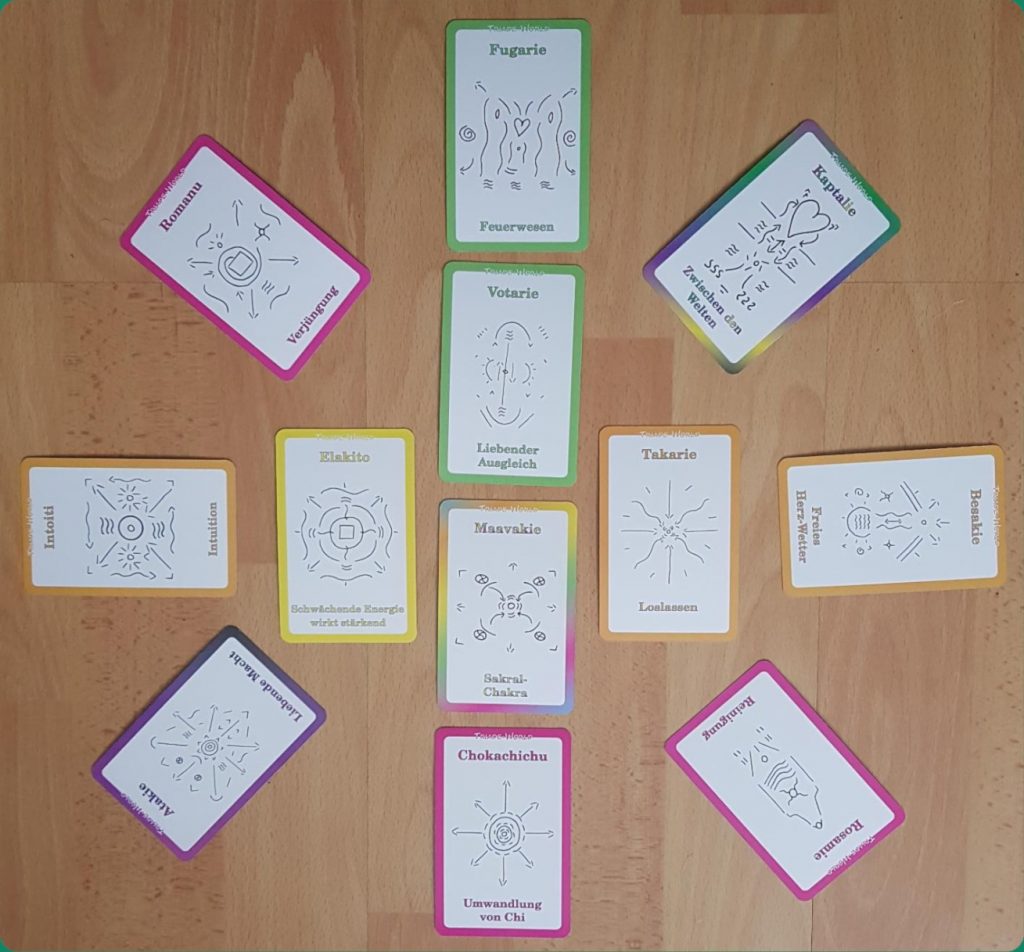 Fugarie
Feuerwesen
Romanu
Verjüngung
Kaptalie
Zwischen den
Welten
Votarie
Liebender
Ausgleich
Intoiti
Intuition
Elakito
Schwächende Energie
wirkt stärkend
Maavakie
Sakral-
Chakra
Takarie
Loslassen
Besakie
Freies
Herz-Wetter
Atakie
Liebende Macht
Chokachichu
Umwandlung
von Chi
Rosamie
Reinigung